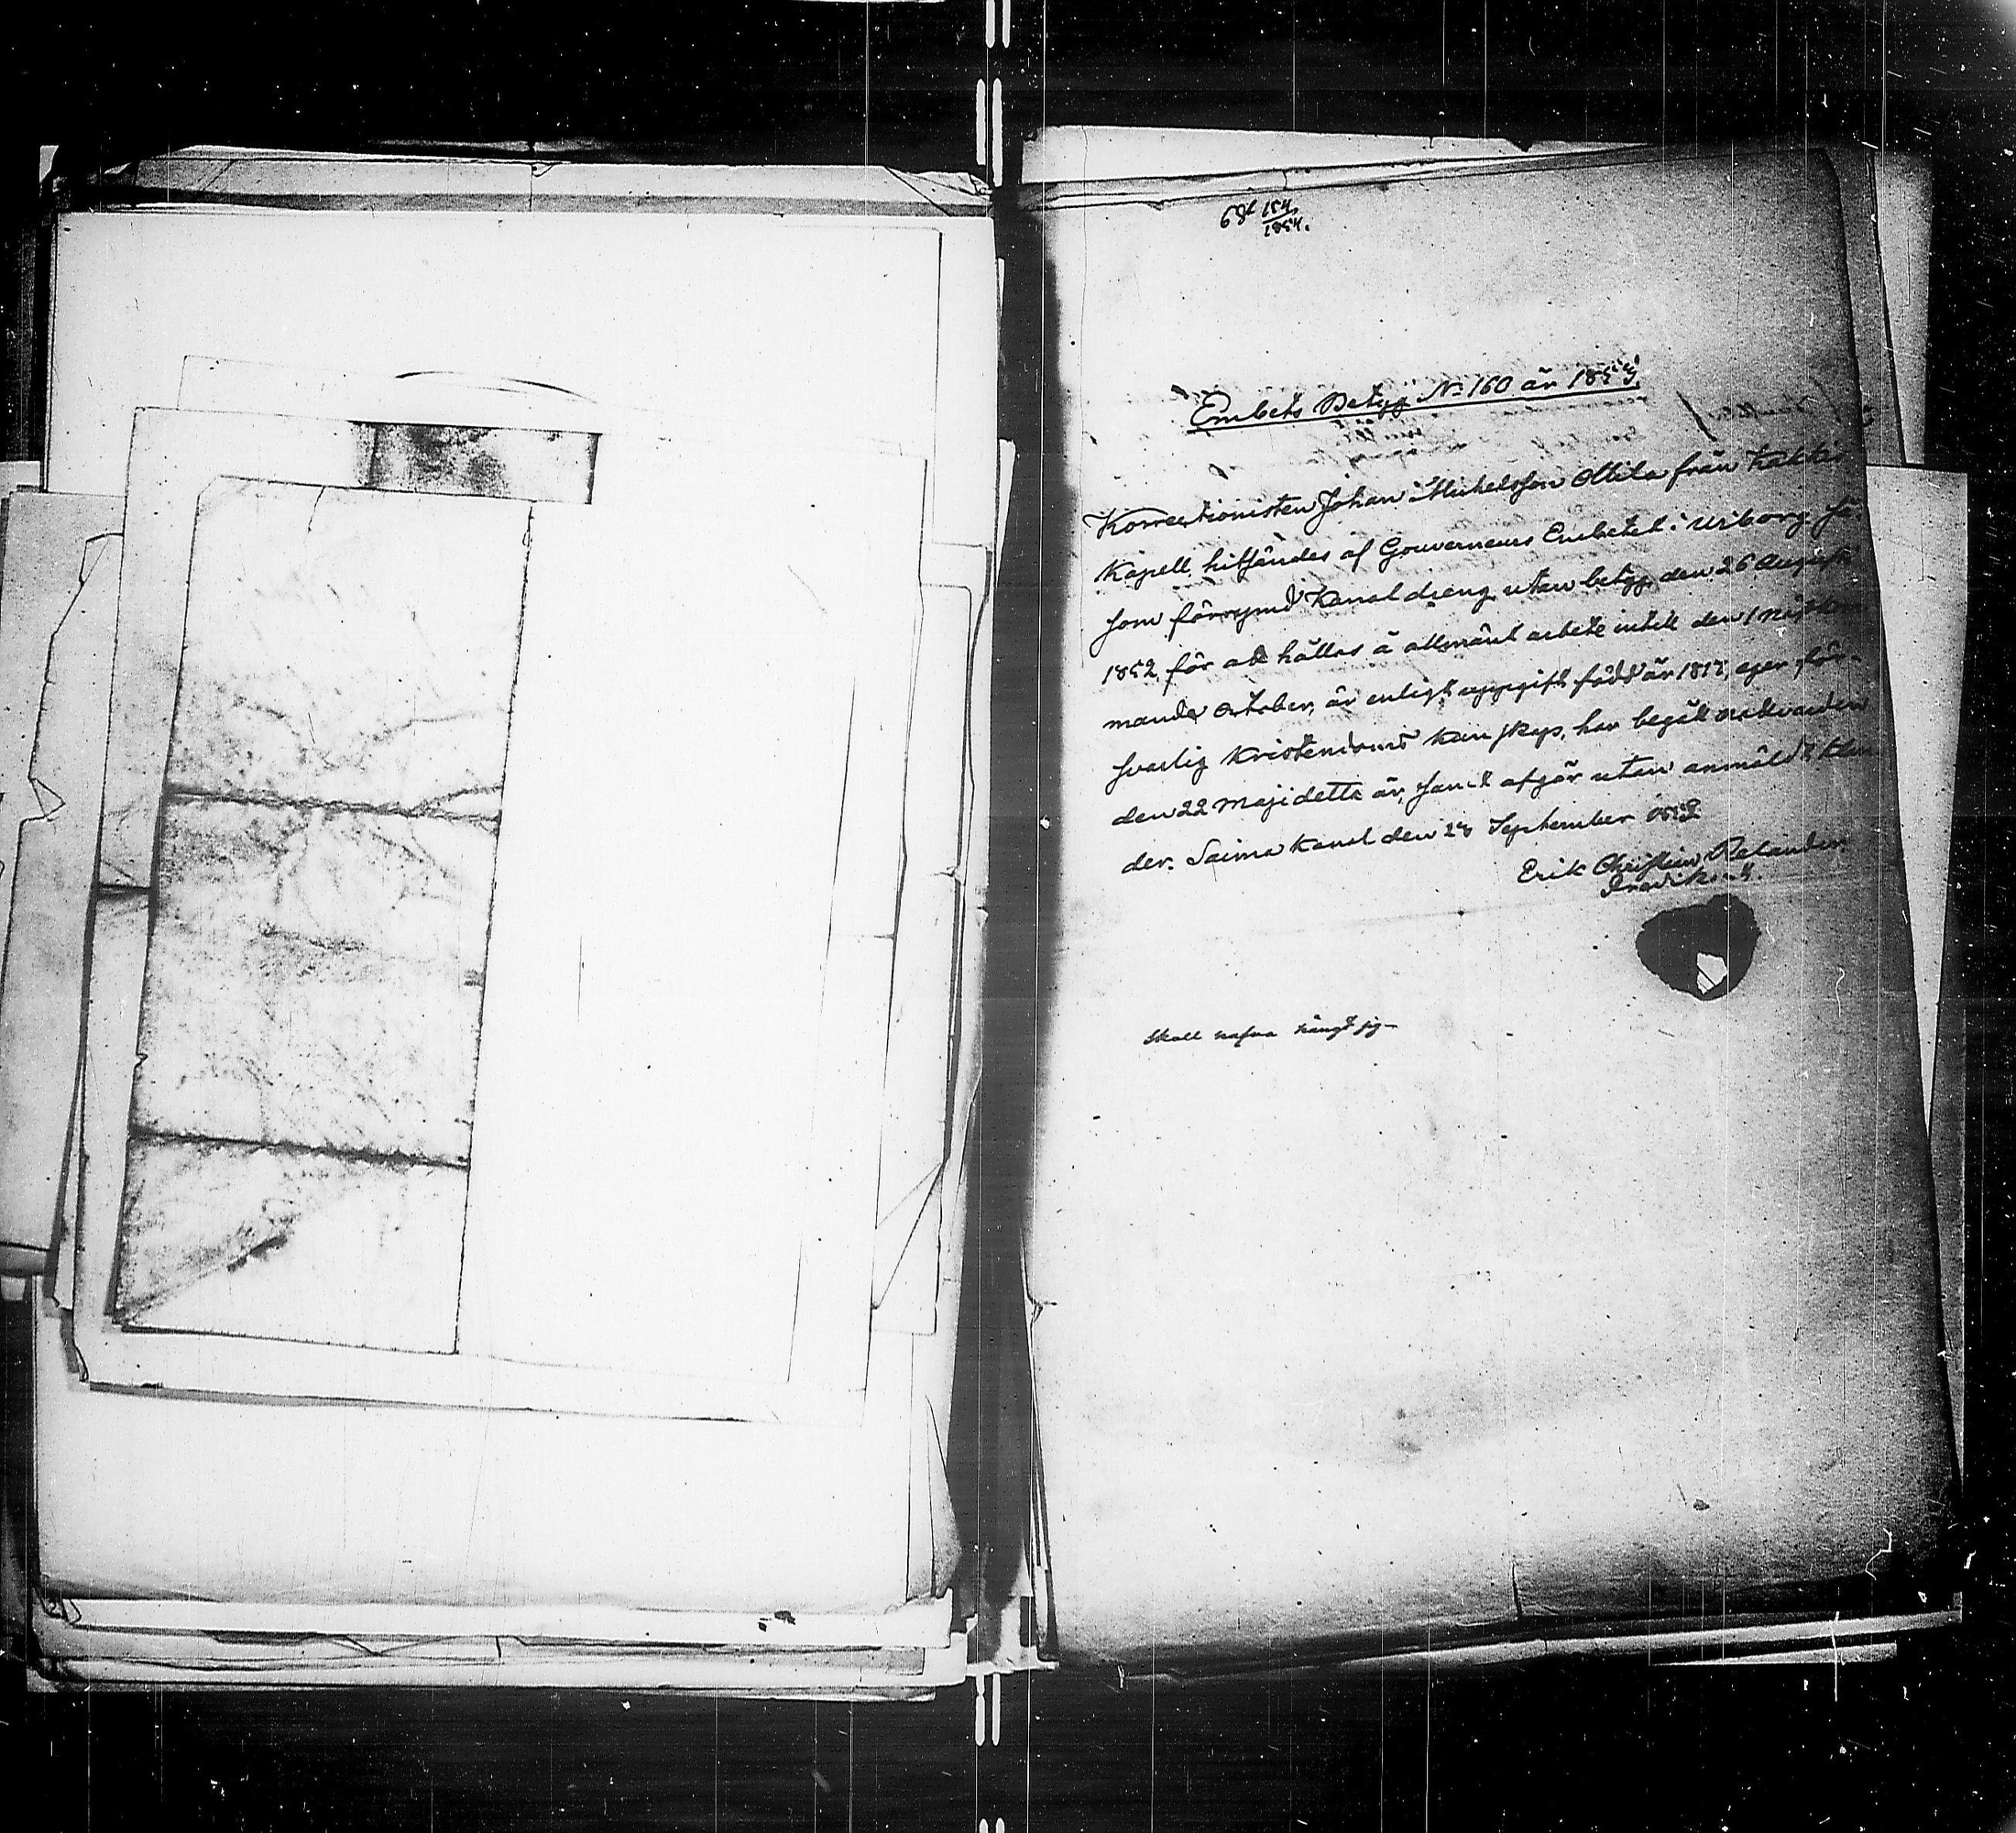 68t 154.
1854.
Embets Betyg No 160 år 1852
Korrectionisten Johan Michelsson Ottila från
Kapell, hitsändes af Gouverneurs Embetet i Wiborg så-
som förrymd Kanal dreng utan betyg den 26 Augusti
1852, för att hållas å allmänt arbete intill den 1 näst kom-
mande October, är enligt uppgift född år 1817, eger för-
svarlig Kristendoms kunskap, har begått nattvarden
den 22 Maji detta år, samt afgår utan anmäldt klan-
der. Saima Kanal den September 1852
Erik Christian Relander
Predikant.
Skall hafva hängt sig—